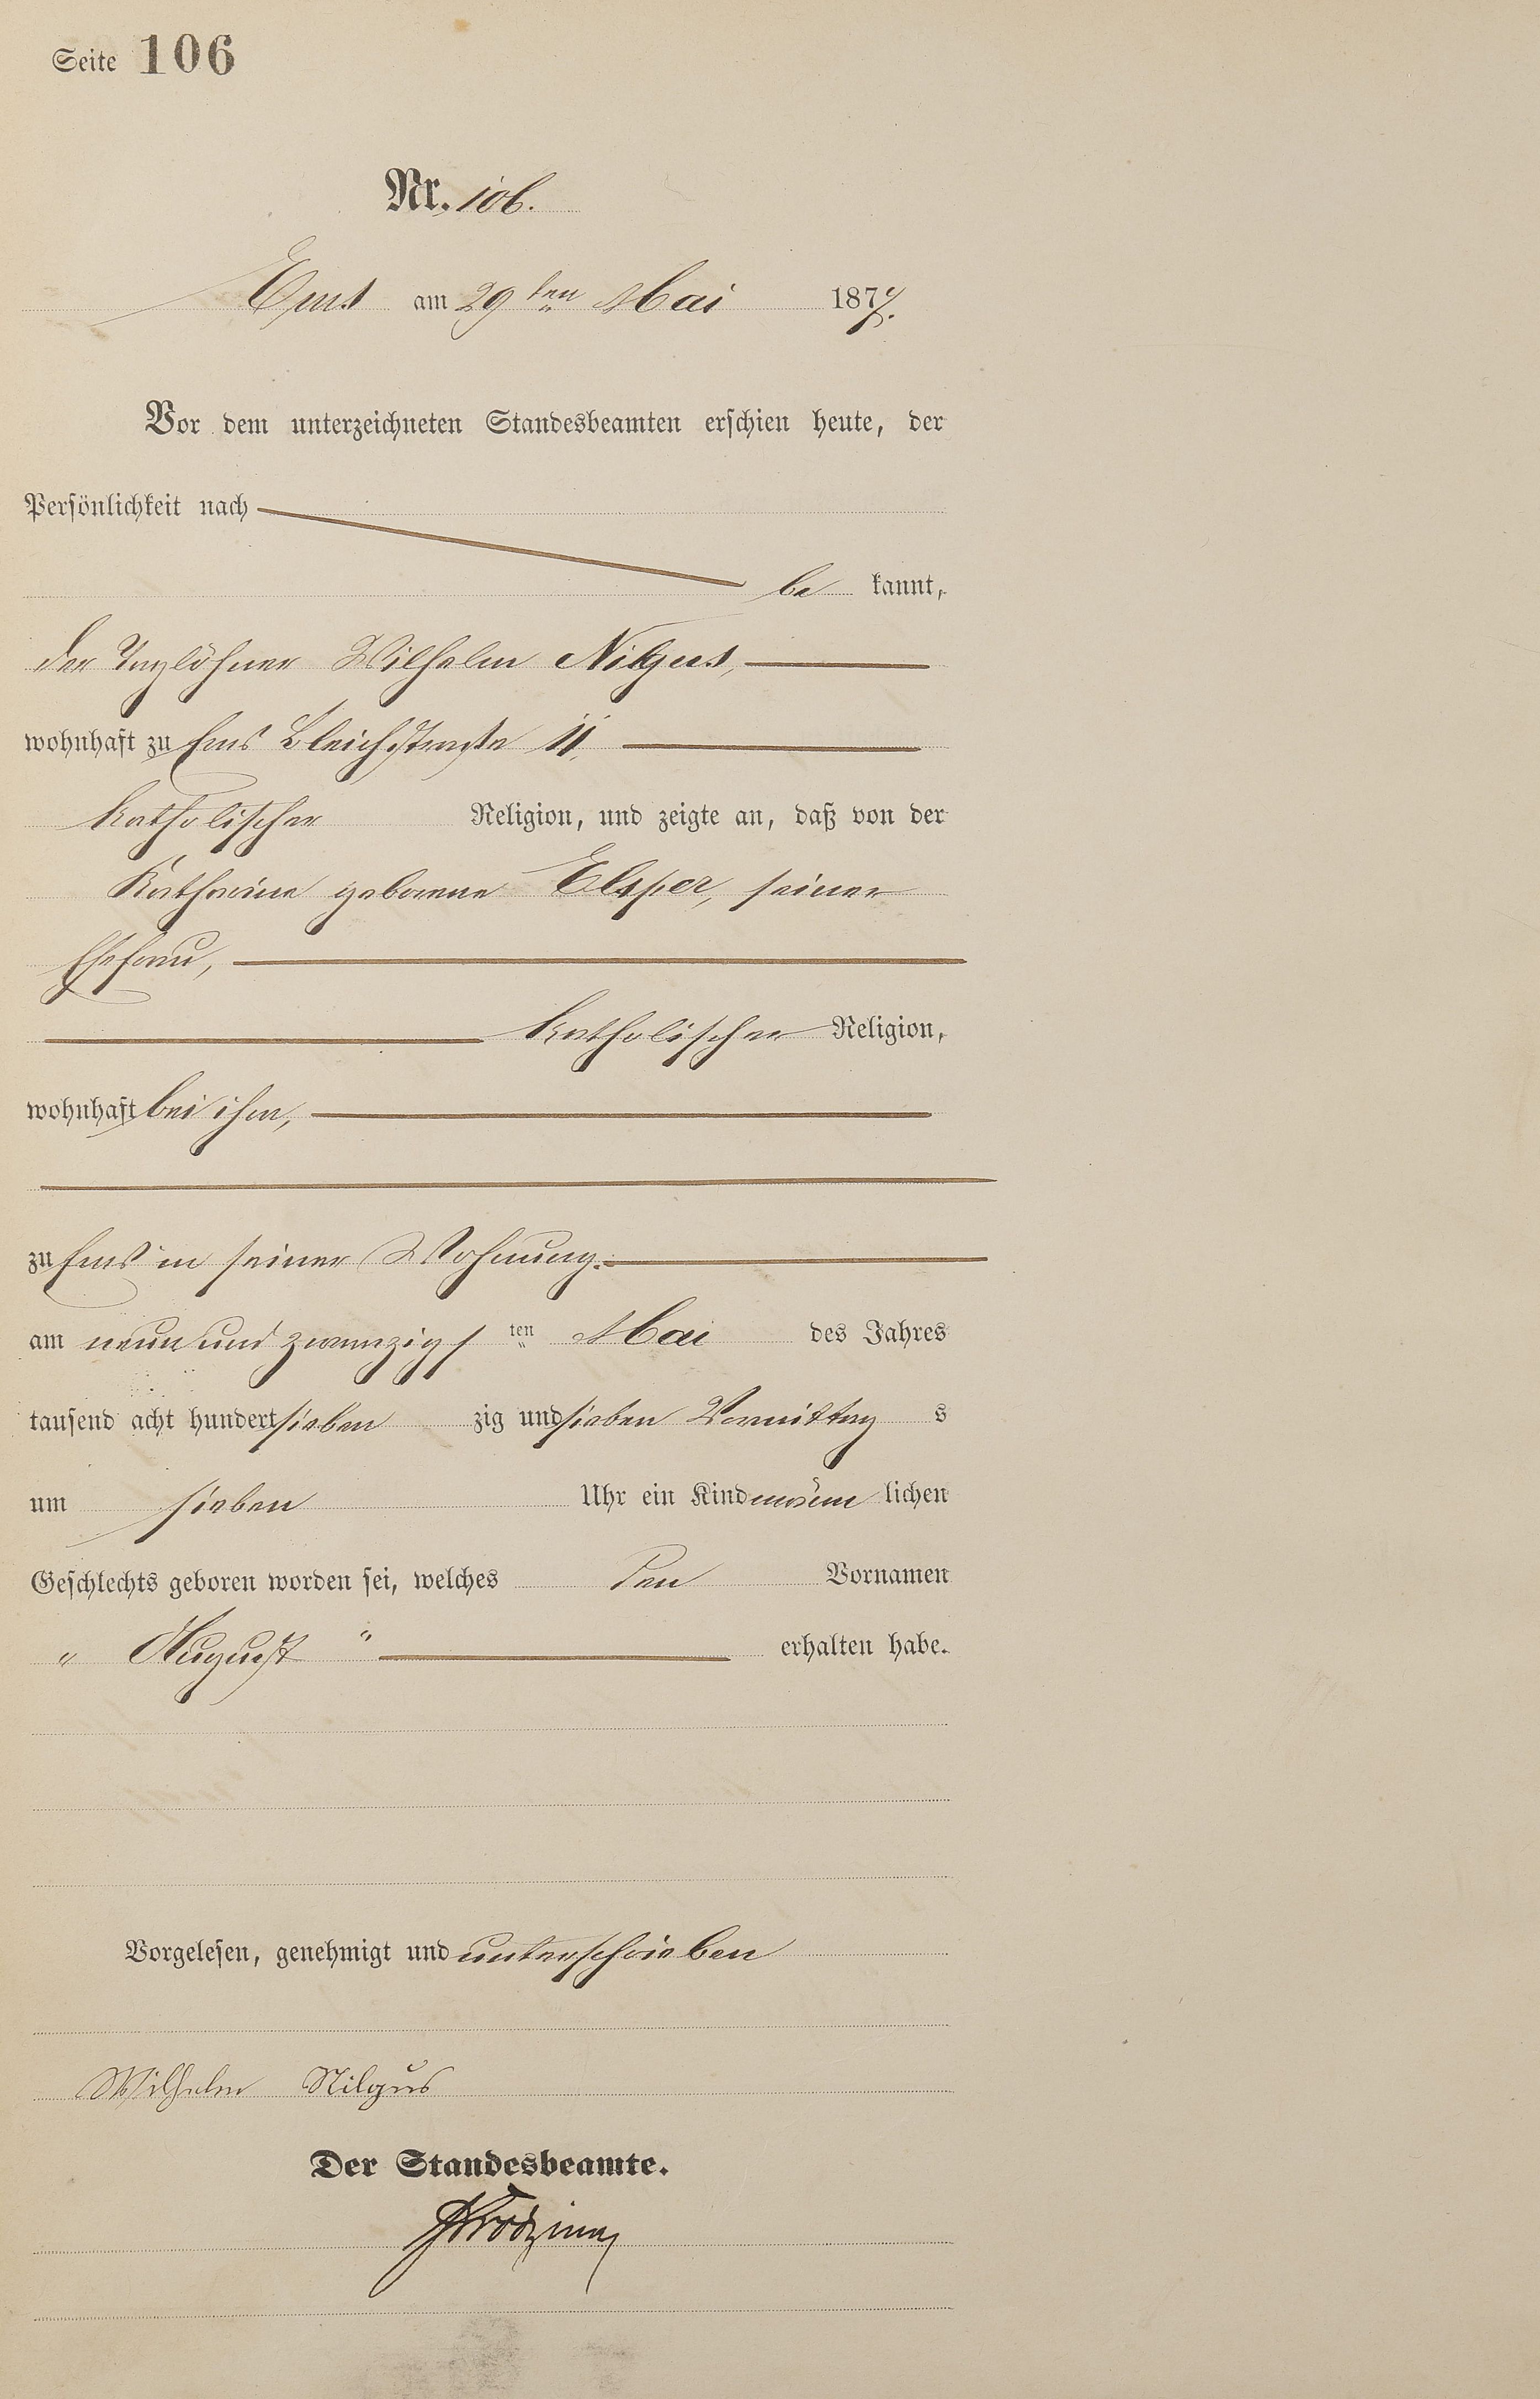 Seite 106
Nr. 106.
Ems am 29ten Mai 1877.
Vor dem unterzeichneten Standesbeamten erschien heute, der
Persönlichkeit nach
be kannt,
der Taglöhner Wilhelm Nilgus,
wohnhaft zu Ems Bleichstraße 11.
katholischer Religion, und zeigte an, daß von der
Katharine geborene Elsper, seiner
Ehefrau,
katholischer Religion,
wohnhaft bei ihm,
zu Ems in seiner Wohnung.
am neun und zwanzigs ten Mai des Jahres
tausend acht hundert sieben zig und sieben Vormittag s
um sieben Uhr ein Kind männ lichen
Geschlechts geboren worden sei, welches den Vornamen
„ August " erhalten habe.
Vorgelesen, genehmigt und unterschrieben
Wilhelm Nilgus
Der Standesbeamte.